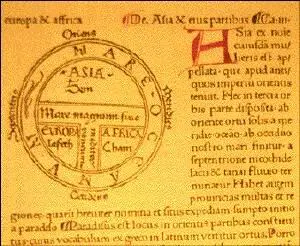 europa & affrica
De Asia & eius partibus
Oriens
MARE OCEANUM
ASIA
Sem
Mare magnum siue
mediterraneum
EUROPA
Iafeth
AFRICA
Cham
Septentrio
Meridies
Asia ex noie
cuiusdã mu
lieris est ap
pellata. que apud anti
quos imperiũ orientis
tenuit. Hec in tercia or
bis parte disposita. ab
oriente ortu solis a me
ridie. oceano. ab occiduo
nostro mari finitur. a
septentrione meothide
lacu & tanai fluuio ter
minatur. Habet autem
prouincias multas et re
giones. quarũ breuiter nomina et situs expediam. sumpto initio
a paradiso Paradisus est locus in orientis partibus
cuius vocabulum ex greco in latinum vertitur